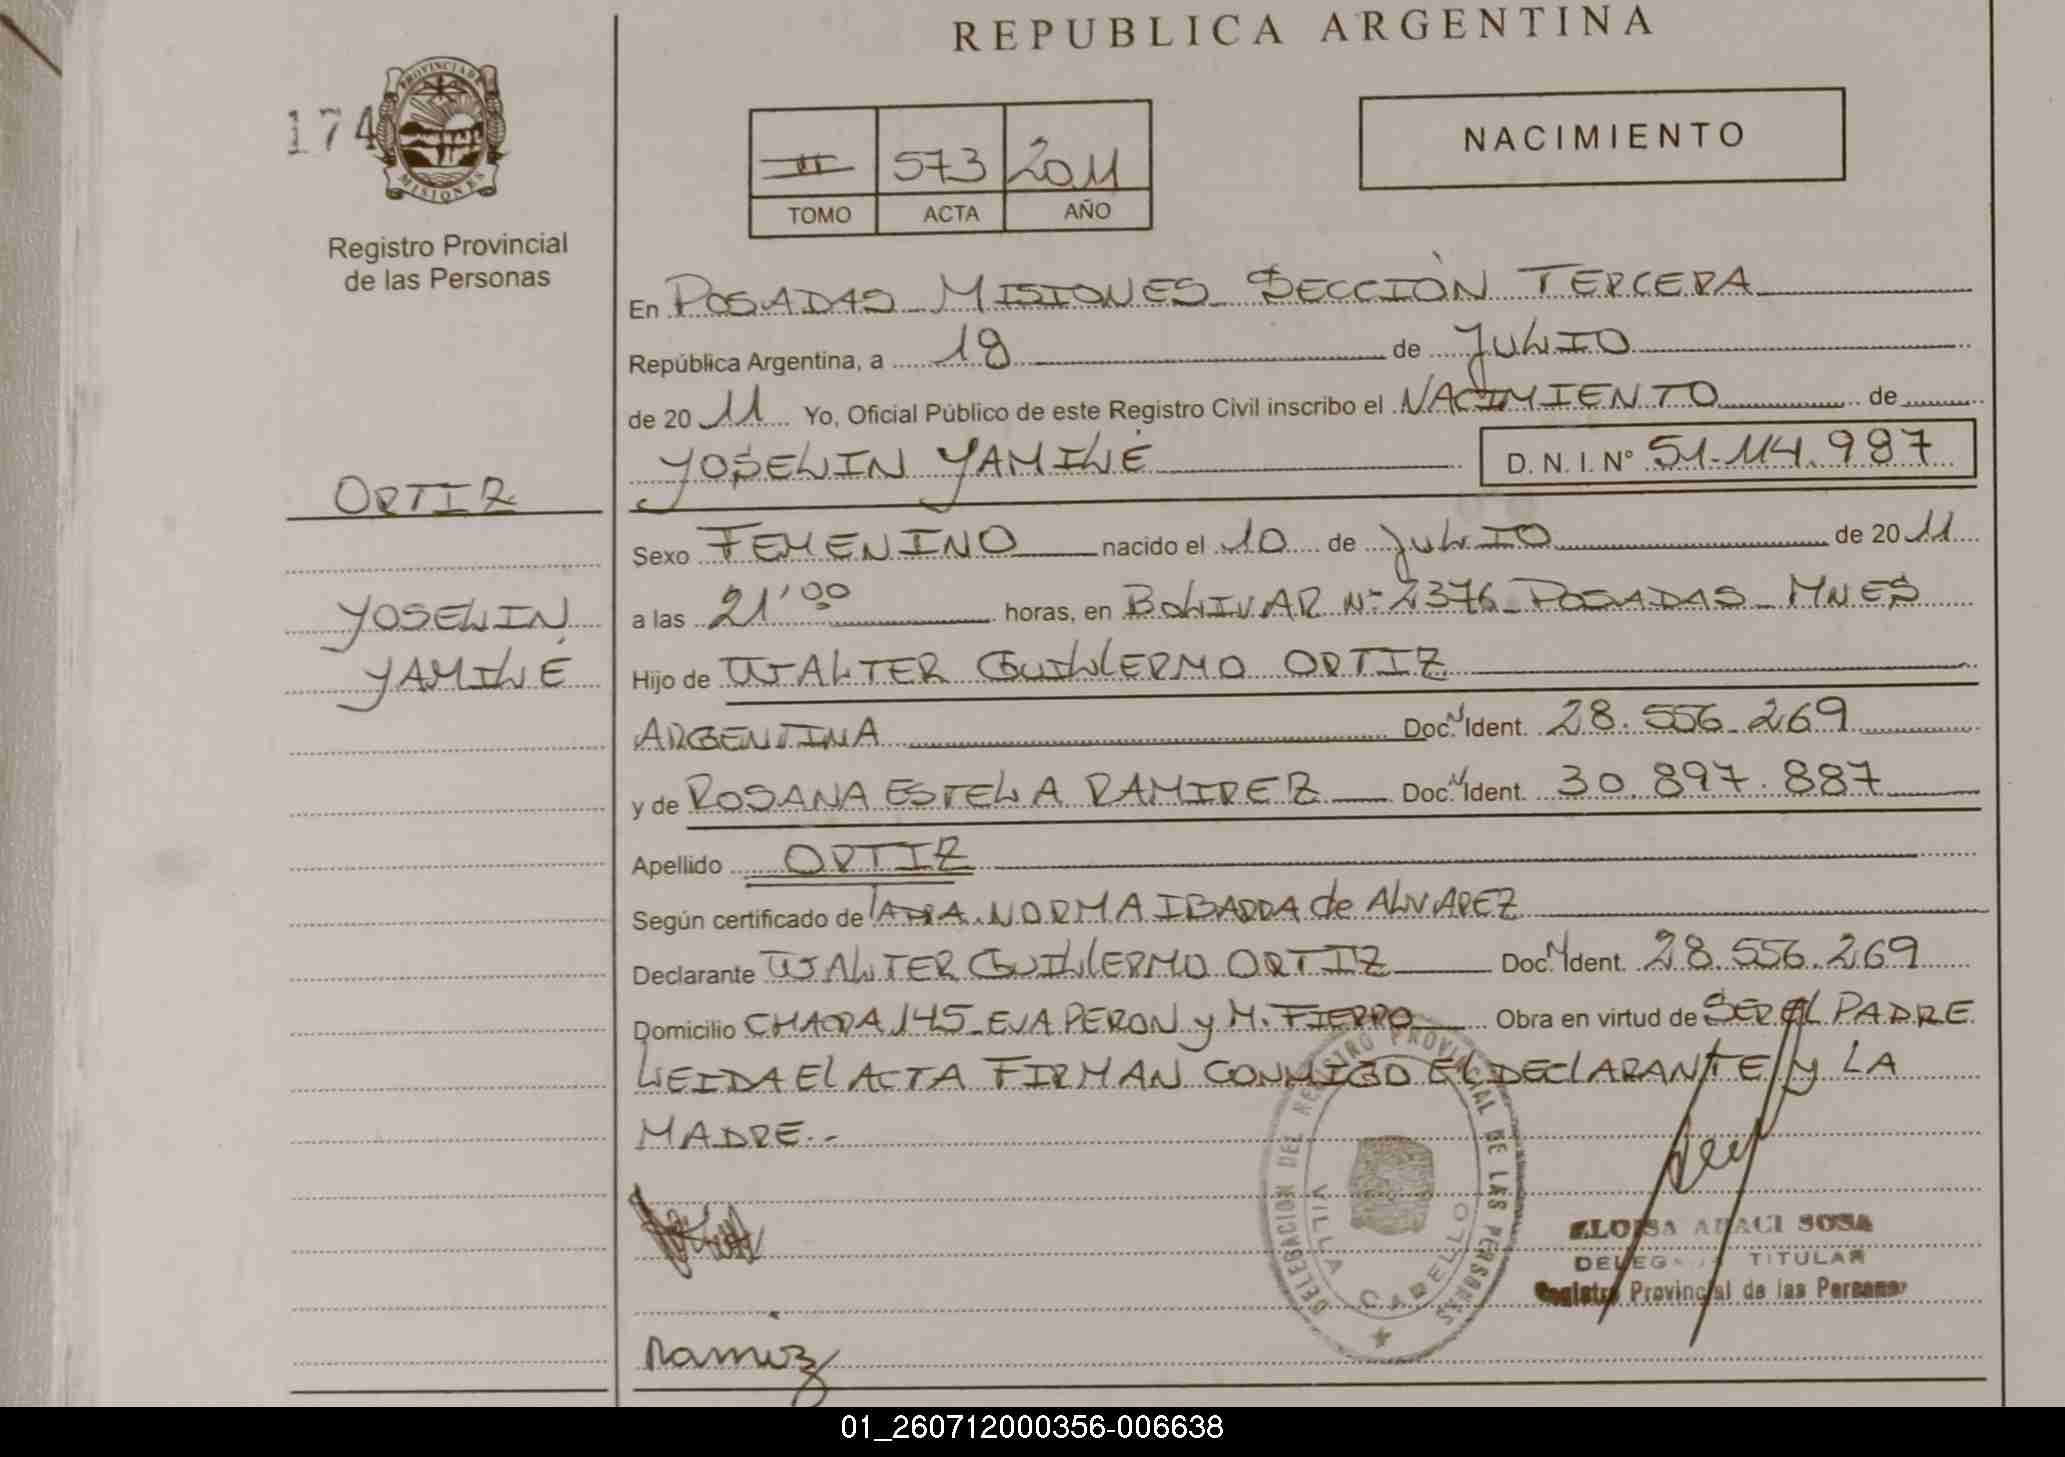 REPUBLICA ARGENTINA
174
PROVINCIA DE
MISIONES
Registro Provincial
de las Personas
II 573 2011
TOMO ACTA AÑO
NACIMIENTO
En POSADAS MISIONES SECCIÓN TERCERA
República Argentina, a 18 de JULIO
de 20 11 Yo, Oficial Público de este Registro Civil inscribo el NACIMIENTO de
YOSELIN YAMILÉ D.N.I.Nº 51.114.987
ORTIZ
YOSELIN
YAMILÉ
Sexo FEMENINO nacido el 10 de JULIO de 20 11
a las 21'00 horas, en BOLIVAR Nº 2376 - POSADAS - MNES
Hijo de WALTER GUILLERMO ORTIZ
ARGENTINA Doc. N Ident. 28.556.269
y de ROSANA ESTELA RAMIREZ Doc. N Ident. 30.897.887
Apellido ORTIZ
Según certificado de NORMA IBARRA de ALVAREZ
Declarante WALTER GUILLERMO ORTIZ Doc. N Ident. 28.556.269
Domicilio CHACRA 145 - EVA PERON y M. FIERRO Obra en virtud de SER EL PADRE
LEIDA El ACTA FIRMAN CONMIGO EL DEClARANTE y LA
MADRE.-
DELEGACION DEL REGISTRO PROVINCIAL DE LAS PERSONAS
VILLA CABELLO
ELOISA ARACI SOSA
TITULAR
Registro Provincial de las Personas
Ramirez
01_260712000356-006638